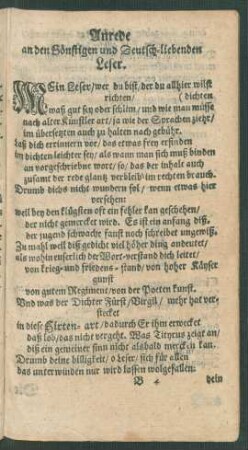 Anrede
an den Gönstigen und Deutsch-liebenden
Leser.
MEin Leser/wer du bist, der du allhier wilst
richten/ (dichten
waß gut sey oder schlim, und wie man müsse
nach alter Künstler art/ ja wie der Sprachen zieht,
im übersetzen auch zu halten nach gebühr.
laß dich erinnern vor, das etwas frey erfinden
im dichten leichter sey/ als wann man sich muß binden
an vorgeschriebne wort/ so, das der inhalt auch
zusamt der rede glantz verbleib/ im rechten brauch.
Drumb dichs nicht wundern sol, wenn etwas hier
versehen:
weil bey den klügsten oft ein fehler kan geschehen/
der nicht gemercket wird. Es ist ein anfang diß,
der jugend schwache faust noch schreibet ungewiß.
Zu mahl weil diß gedicht viel höher ding andeutet/
als wohin euserlich der Wort-verstand dich leitet/
von krieg- und friedens- stand/ von hoher Käyser
gunst
von gutem Regiment/ von der Poeten kunst.
Und was der Dichter Fürst/ Virgil/ mehr hat ver-
stecket
in diese Hirten- art/ dadurch Er ihm erwecket
daß lob/ das nicht vergeht. Was Tityrus zeigt an/
diß ein gemeiner sinn nicht alsbald mercken kan.
Drumb deine billigkeit/ o Leser/ sich für allen
das unterwünden nur wird lassen wolgefallen.
B 4 dein